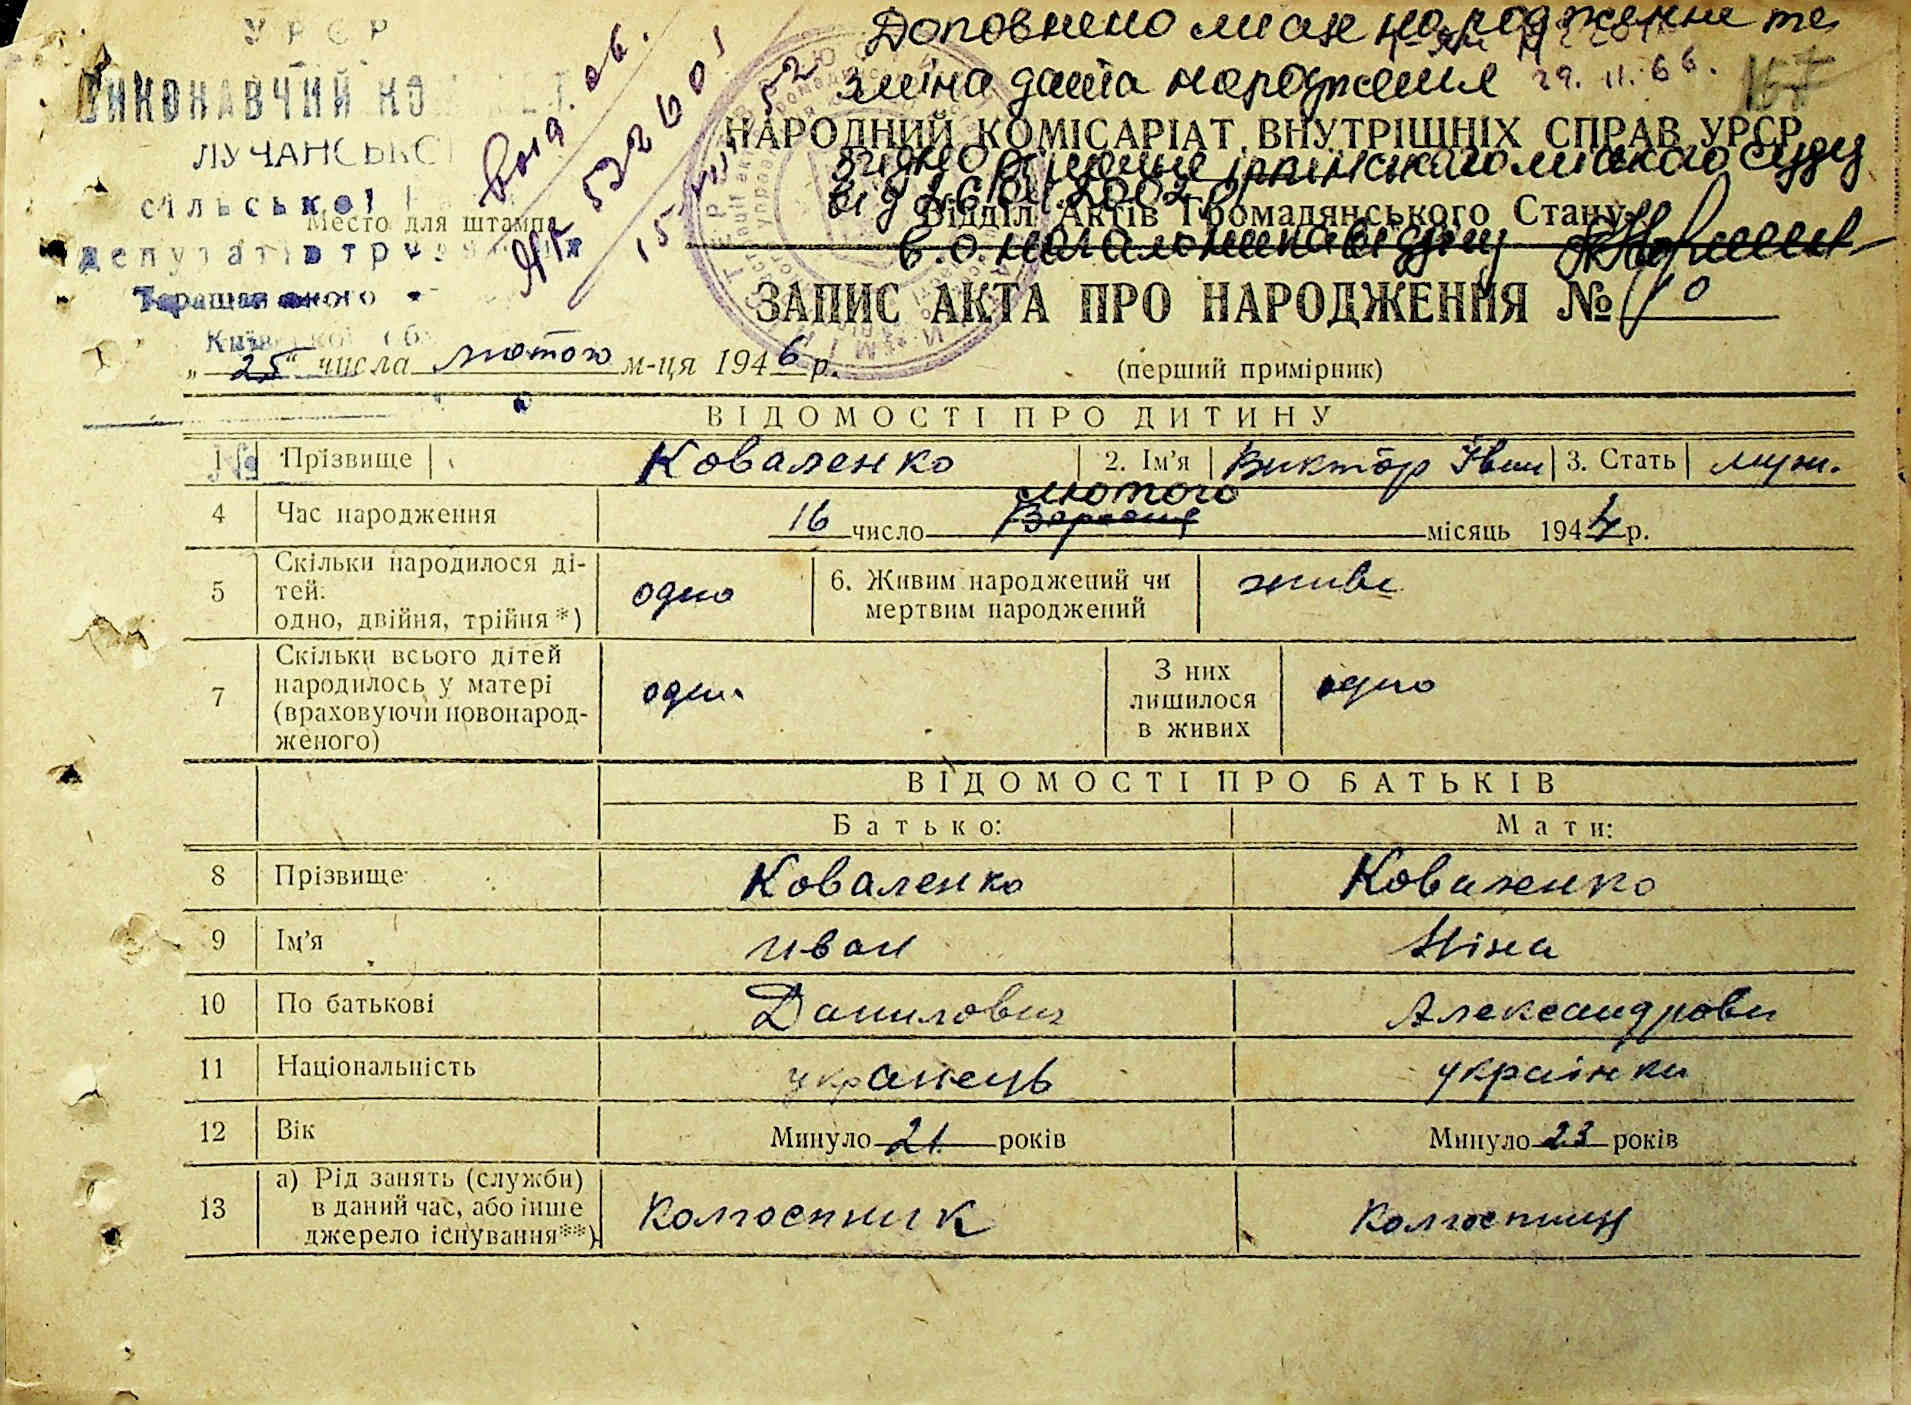 УРСР
ВИКОНАВЧИЙ
ЛУЧАНСЬКОЇ
сільської
Место для штампа
депутатів
Таращанського
Київської
Доповнено місце народження та
зміна дата народження
29. 11. 66.
НАРОДНИЙ КОМІСАРІАТ ВНУТРІШНІХ СПРАВ УРСР
згідно рішення Ірпінського міського суду
Відділ Актів Громадянського Стану
в.о. начальника відділу
ЗАПИС АКТА ПРО НАРОДЖЕННЯ № 10
„25" числа лютого м-ця 1946 р.
(перший примірник)
ВІДОМОСТІ ПРО ДИТИНУ
1 Прізвище Коваленко 2. Ім'я Виктор Іван 3. Стать муж.
4 Час народження 16 число лютого Вересня місяць 1944 р.
5 Скільки народилося ді-
тей:
одно, двійня, трійня *) одно 6. Живим народжений чи
мертвим народжений живе
7 Скільки всього дітей
народилось у матері
(враховуючи новонарод-
женого) один З них
лишилося
в живих одно
ВІДОМОСТІ ПРО БАТЬКІВ
Батько: Мати:
8 Прізвище Коваленко Коваленко
9 Ім'я иван Ніна
10 По батькові Данилович Александровн
11 Національність українець українка
12 Вік Минуло 21 років Минуло 23 років
13 а) Рід занять (служби)
в даний час, або інше
джерело існування**) Колгоспник Колгоспниц